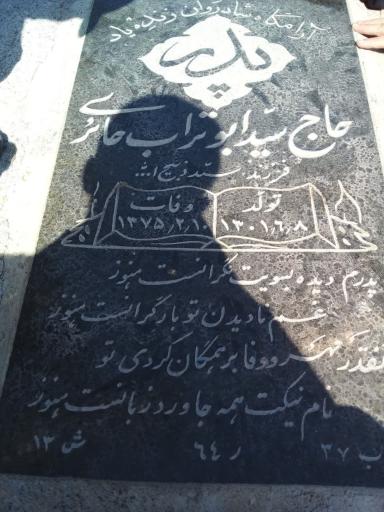 آرامگاه شادروان زنده یاد
پدر
حاج سید ابوتراب حائری
فرزند سید ذبیح اله
تولد
۱۳۰۱/۶/۸
وفات
۱۳۷۵/۲/۱۰
پدرم دیده بسویت نگرانست هنوز
غم نادیدن تو بار گرانست هنوز
آنقدر مهر و وفا بر همگان کردی تو
نام نیکت همه جا ورد زبانست هنوز
ب ۳۷ ر ۶۴ ش ۱۲